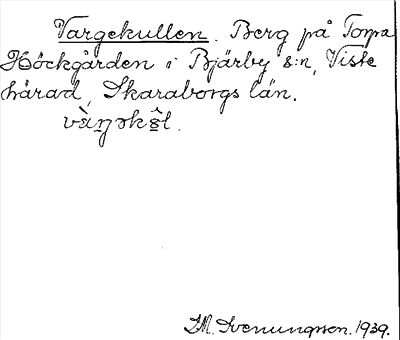 Vargekullen. Berg på Torpa
Höckgården i Bjärby s:n, Viste
härad, Skaraborgs län.
S.M. Svenungsson. 1939.